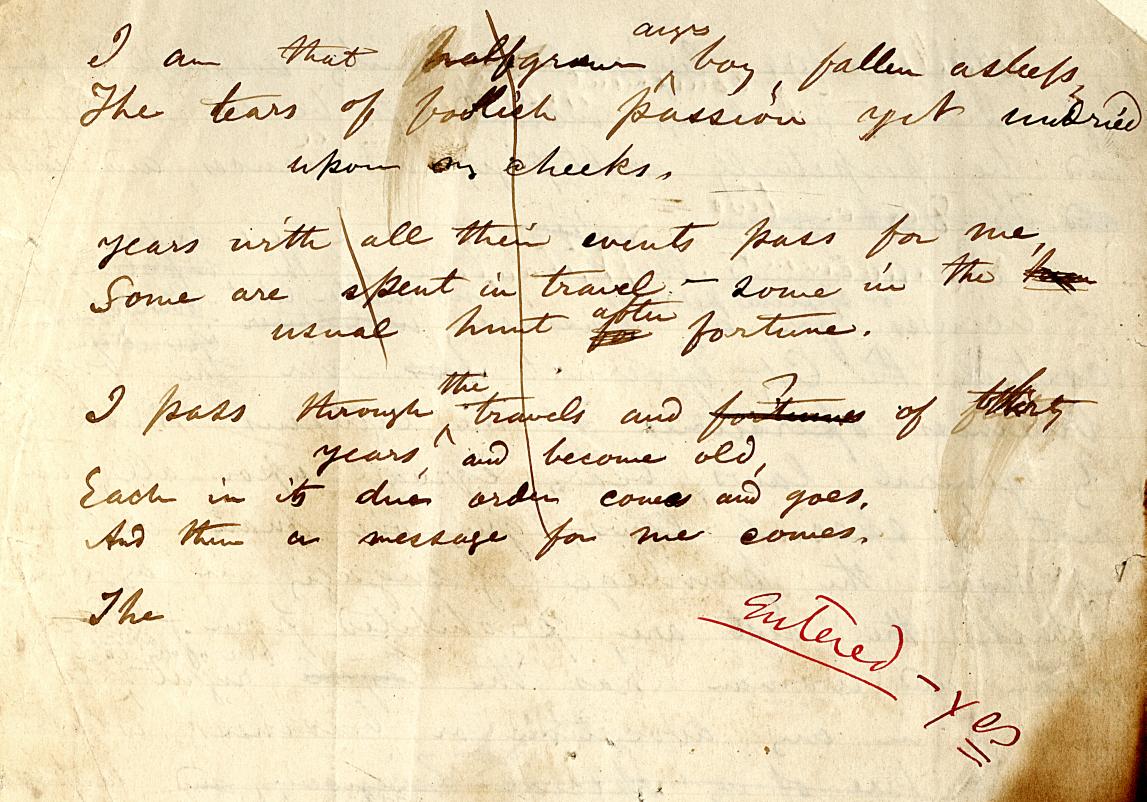 I am that halfgrown angry boy, fallen asleep,
The tears of foolish passion yet undried
upon my cheeks.
years with all their events pass for me,
Some are spent in travel – some in the
usual hunt after fortune.
I pass through the travels and fortunes of thirty
years, and become old,
Each in its due order comes and goes,
And then a message for me comes.
The
Entered – Yes